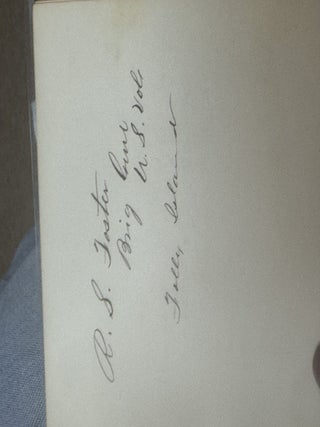 R. S. Foster
Brig Genl U. S. Vols
Folly Island